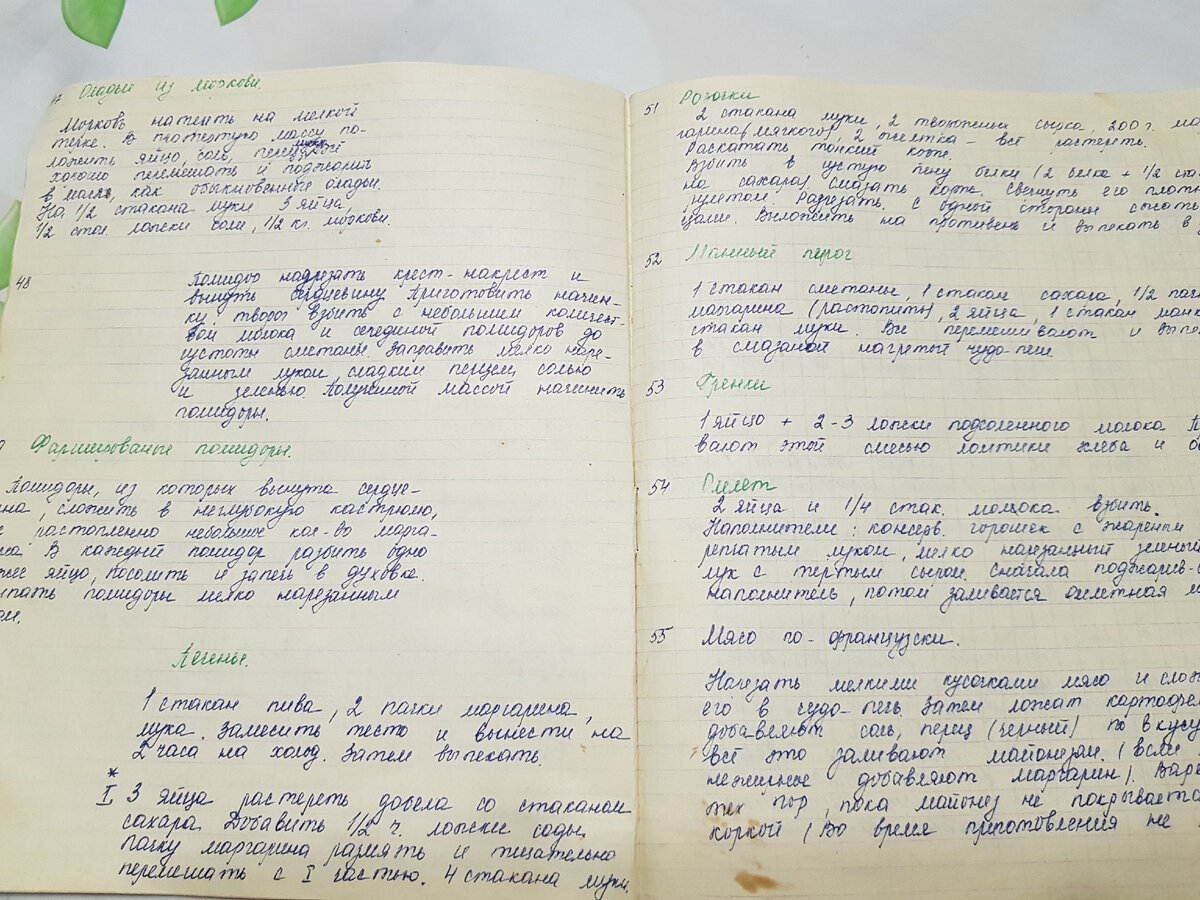 47 Оладьи из моркови.
Морковь натереть на мелкой
терке. В протертую массу по-
ложить яйцо, соль, муку
хорошо перемешать и поджарить
в масле, как обыкновенные оладьи.
На 1/2 стакана муки 3 яйца
1/2 стол. ложски соли, 1/2 кг. моркови.
48
Помидор надрезать крест-накрест и
вынуть сердцевину. Приготовить начин-
ку творог взбить с небольшим количест-
вом молока и серединой помидоров до
густоты сметаны. Заправить мелко наре-
занным луком, сладким перцем, солью
и зеленью. Полученной массой начинить
помидоры.
Фаршированые помидоры.
Помидоры, из которых вынута сердце-
на, сложить в неглубокую кастрюлю,
растопленно небольшое кол-во марга-
на В каждый помидор разбить одно
яйцо, посолить и запечь в духовке.
помидоры мелко нарезанным
Печенье.
1 стакан пива, 2 пачки маргарина,
мука. Замесить тесто и вынести на
2 часа на холод. Затем выпекать.
*
I 3 яйца растереть добела со стаканом
сахара Добавить 1/2 ч. ложски соды,
пачку маргарина размять и тщательно
перемешать с I частью. 4 стакана муки.
51 Розочки
2 стакана муки, 2 творожных сырка, 200 г. мар
гарина (мягкого), 2 желтка - всё растереть.
Раскатать тонкий корж.
Взбить в густую пену белки (2 белка + 1/2 ста
на сахара) смазать корж. Свернуть его плот
рулетом. Разрезать. С одной стороны сжать
цами. Выложить на противень и выпекать в
52 Манный перог
1 стакан сметаны, 1 стакан сахара, 1/2 пач
маргарина (растопить), 2 яйца, 1 стакан манк
стакан муки. Все перемешивают и выпе
в смазаной нагретый чудо-печи.
53 Гренки
1 яйцо + 2-3 ложки подсоленного молока
вают этой смесью ломтики хлеба и об
54 Омлет
2 яйца и 1/4 стак. молока взбить.
Наполнители: консерв. горошек с жареным
репчатым луком, мелко нарезанный зелены
лук с тертым сыром. Сначала поджарив-
наполнитель, потом заливается омлетная м
55 Мясо по-французски.
Нарезать мелкими кусочками мясо и слож
его в чудо-печь. Затем ложат картофел
добавляют соль, перец (черный) по вкусу
всё это заливают майонезом. (Если
нежирное добавляют маргарин). Варе
тех пор, пока майонез не покрывается
коркой (Во время приготовления не